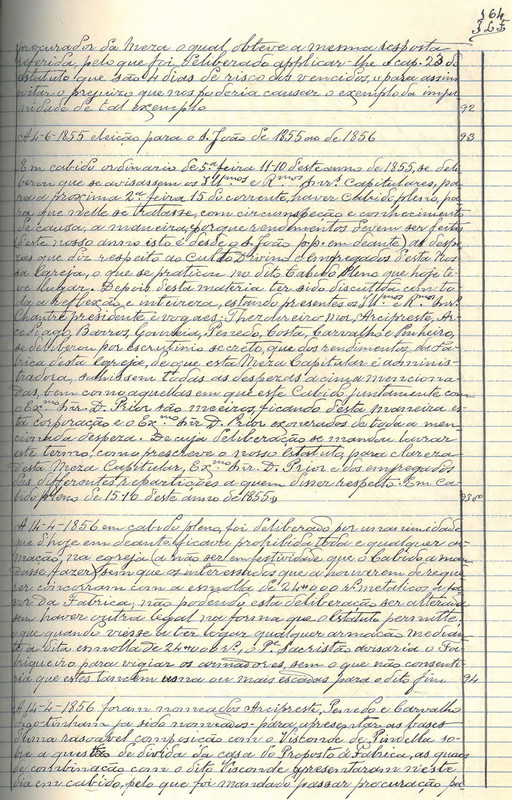 164
procurador da Meza o qual, obteve a mesma resposta
referida, pelo que foi deliberado applicar-lhe o cap. 23 do
estatuto que são n dias de risco dos vencidos, e para assim
evitar o prejuizo que nos poderia causar o exemplo da impu
nidade de tal exemplo 92
A 4-6-1855 eleição para o S. João de 1855 ao de 1856 93
Em cabido ordinario de 5ª feira 11-10 deste anno de 1855, se deli
berou que se avisassem os Illmos e Rmos Snrs Capitulares, pa
ra a proxima 2ª feira 15 do corrente, haver Cabido pleno, pa
ra que nelle se tratasse, com circunspeção e conhecimento
de causa, a maneira, porque rendimentos devem ser feitas
(deste nosso anno isto é desde o S. João p.p. em deante) as despe
zas que diz respeito ao Culto Divino e empregados desta Nos
sa Egreja, o que se praticou no dito Cabido Pleno que hoje te
ve lugar. Depois desta materia ter sido discutida com to
da a reflexão e inteireza, estando presentes os Illmos e Rmos Snrs
Chantre presidente e vogaes: Thezoureiro Mor, Arcipreste, Ar
cediago, Barros, Gouveia, Penedo, Costa, Carvalho e Pinheiro,
se deliberou por escrutinio secreto, que dos rendimentos da Fa
brica desta Egreja, de que esta Meza Capitular é adminis
tradora, sahissem todas as despezas acima menciona
das, bem como aquellas em que este Cabido juntamente com
o Exmo Snr. D. Prior são meeiros, ficando desta maneira es
ta corporação e o Exmo Snr. D. Prior exonerados de toda a men
cionada despeza. De cuja deliberação se mandou lavrar
este termo, como prescreve o nosso Estatuto, para clareza
desta Meza Capitular, Exmo Snr. D. Prior e dos empregados
das differentes repartições a quem disser respeito. Em ca
bido pleno de 15-10 deste anno de 1855 93
A 14-4-1856 em cabido pleno, foi deliberado por unanimidade
que d'hoje em deante ficava prohibida toda e qualquer ar
mação, na egreja (a não ser em festividade que o Cabido a man
dasse fazer) sem que os interessados que a houverem de reque
rer concorram com a esmolla de 24#000 rs metalicos a fa
vor da Fabrica, não podendo esta deliberação ser alterada
sem haver outra igual na forma que o Estatuto permitte;
e que quando viesse a ter logar qualquer armação median
te a dita esmolla de 24#000 rs, o Pe Sacristão avisaria o Fa
briqueiro para vigiar os armadores, sem o que não consenti
ria que estes tancem uma ou mais escadas para e dito fim 94
A 14-4-1856 foram nomeados Arcipreste, Penedo e Carvalho
que tinham ja sido nomeados para apresentar as bases
duma rasoavel composição com o Visconde de Pindella so
bre a questão de divida da casa do Proposto á Fabrica, as quaes
de combinação com o dito Visconde apresentaram n'este
dia em cabido, pelo que foi mandado passar procuração pa